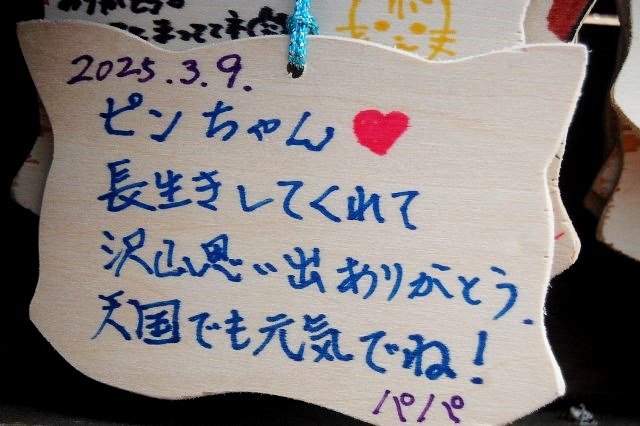 2025.3.9.
ピンちゃん
長生きしてくれて
沢山思い出ありがとう.
天国でも元気でね!
パパ